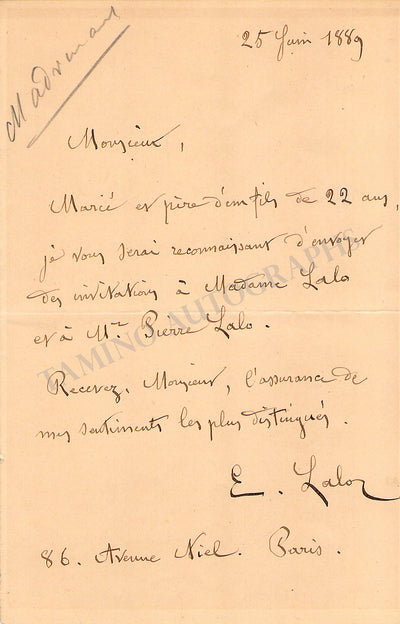 25 Juin 1889
Monsieur,
Marié et père d'un fils de 22 ans,
je vous serai reconnaissant d'envoyer
des invitations à Madame Lalo
et à Mr Pierre Lalo.
Recevez, Monsieur, l'assurance de
mes sentiments les plus distingués.
E. Lalo
86. Avenue Niel. Paris.
TAMINO AUTOGRAPHS